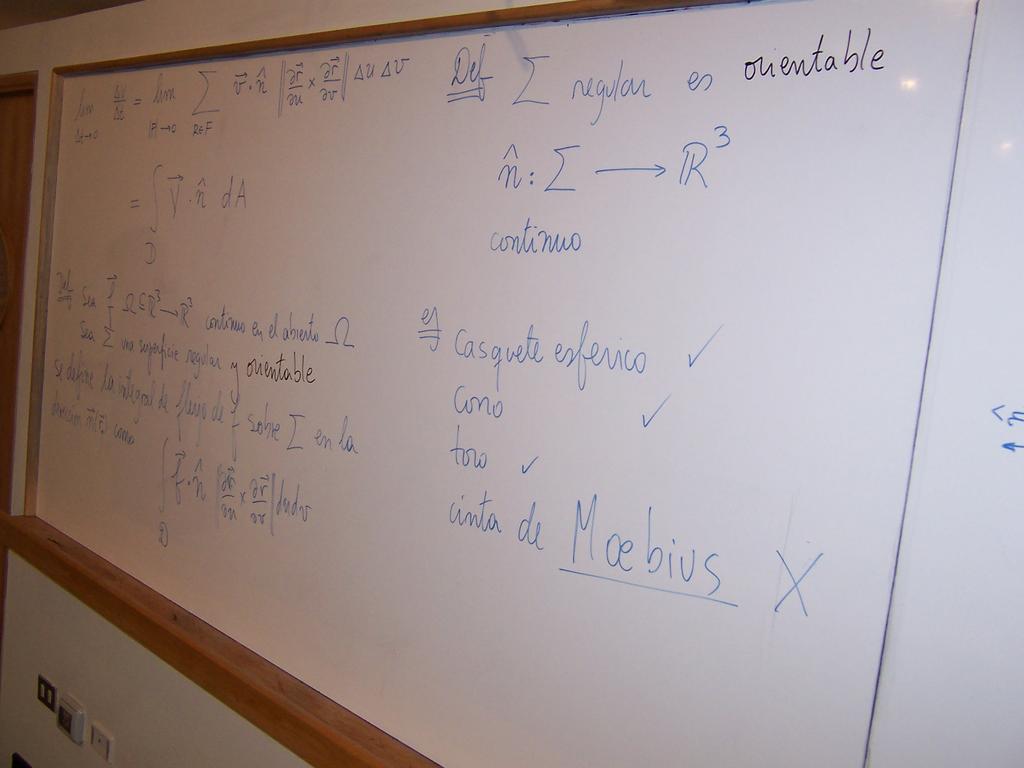 lim Δt→0 ΔV/Δt = lim |P|→0 Σ R∈F v⃗·n̂ |∂r⃗/∂u × ∂r⃗/∂v| Δu Δv
= ∫ D V⃗·n̂ dA
Def Sea f⃗ Ω⊆ℝ³→ℝ³ continuo en el abierto Ω
Sea Σ una superficie regular y orientable
se define la integral de flujo de f sobre Σ en la
dirección n⃗(r⃗) como
∫ D f⃗·n̂ |∂r⃗/∂u × ∂r⃗/∂v| du dv
Def Σ regular es orientable
n̂: Σ → ℝ³
continuo
ej casquete esferico ✓
Cono ✓
toro ✓
cinta de Moebius X
n̂
←